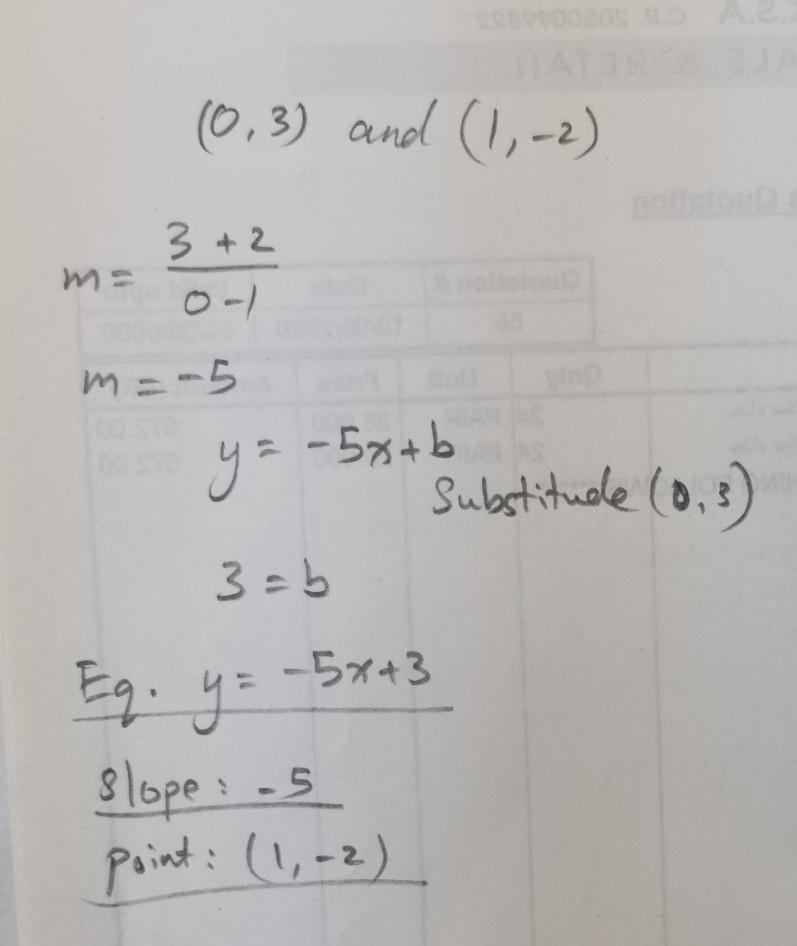 (0,3) and (1,-2)
m = 3+2 / 0-1
m = -5
y = -5x+b
Substitude (0,3)
3 = b
Eq. y = -5x+3
Slope: -5
point: (1,-2)